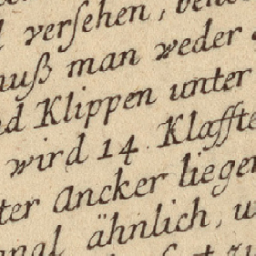 versehen,
muß man weder
Klippen unter
wird 14. Klaffte
ter Ancker liegen
ähnlich,